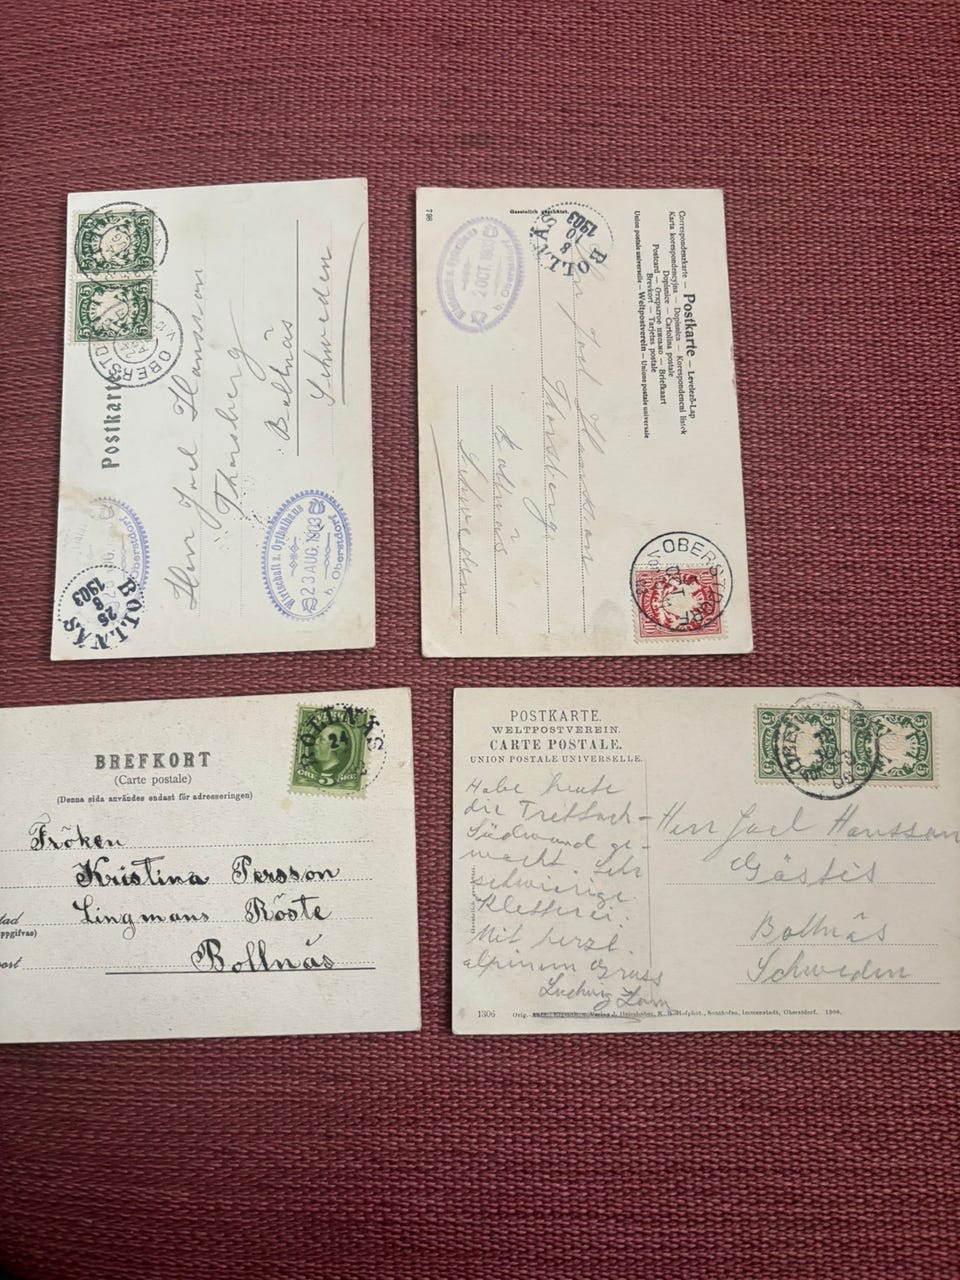 Postkarte
Herrn Joel Hansson
Thorsberg
Bollnäs
Schweden
V. OBERSTDORF
Wirtschaft z. Oythalhaus
23 AUG. 1903
b. Oberstdorf
Oberstdorf
BOLLNÄS
25
8
1903
798
Gesetzlich geschützt.
Correspondenzkarte — Postkarte — Levelező-Lap
Karta korespondencyjna — Dopisnica — Korespondencni listek
Dopisnice — Cartolina postale
Postcard — Briefkaart
Brevkort — Tarjetas postale
Union postale universelle — Weltpostverein — Unione postale universale
b. Oberstdorf
2 OCT. 1903
BOLLNÄS
8
10
1903
Herrn Joel Hansson
Thorsberg
Bollnäs
Schweden
OBERSTDORF
OCT
10
BREFKORT
(Carte postale)
(Denna sida användes endast för adresseringen)
Fröken
Kristina Persson
Lingmans Röste
Bollnäs
BOLLNÄS
24
5
ÖRE
POSTKARTE.
WELTPOSTVEREIN.
CARTE POSTALE.
UNION POSTALE UNIVERSELLE.
Habe heute
die Trettach-
Südwand ge-
macht. Sehr
schwierige
Kletterei.
Mit herzl.
alpinem Gruss
Ludwig
Herr Joel Hansson
Gästis
Bollnäs
Schweden
5
5
1306
Orig. Verlag J. Heimhuber, K. B. Hofphot., Sonthofen, Immenstadt, Oberstdorf.